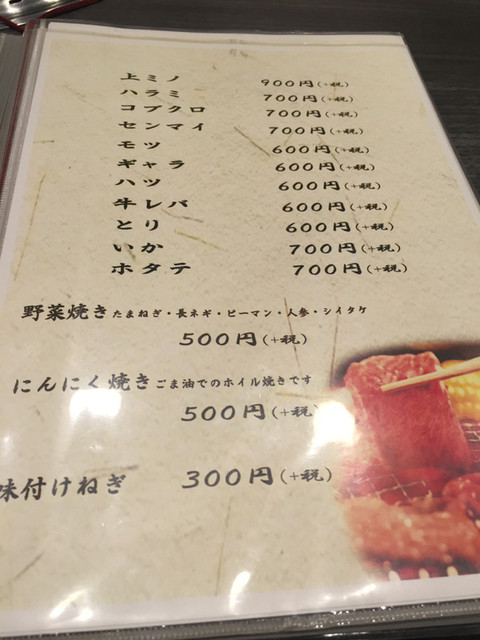 上ミノ 900円(+税)
ハラミ 700円(+税)
コブクロ 700円(+税)
センマイ 700円(+税)
モツ 600円(+税)
ギャラ 600円(+税)
ハツ 600円(+税)
牛レバ 600円(+税)
とり 600円(+税)
いか 700円(+税)
ホタテ 700円(+税)
野菜焼き たまねぎ・長ネギ・ピーマン・人参・シイタケ
500円(+税)
にんにく焼き ごま油でのホイル焼きです
500円(+税)
味付けねぎ 300円(+税)